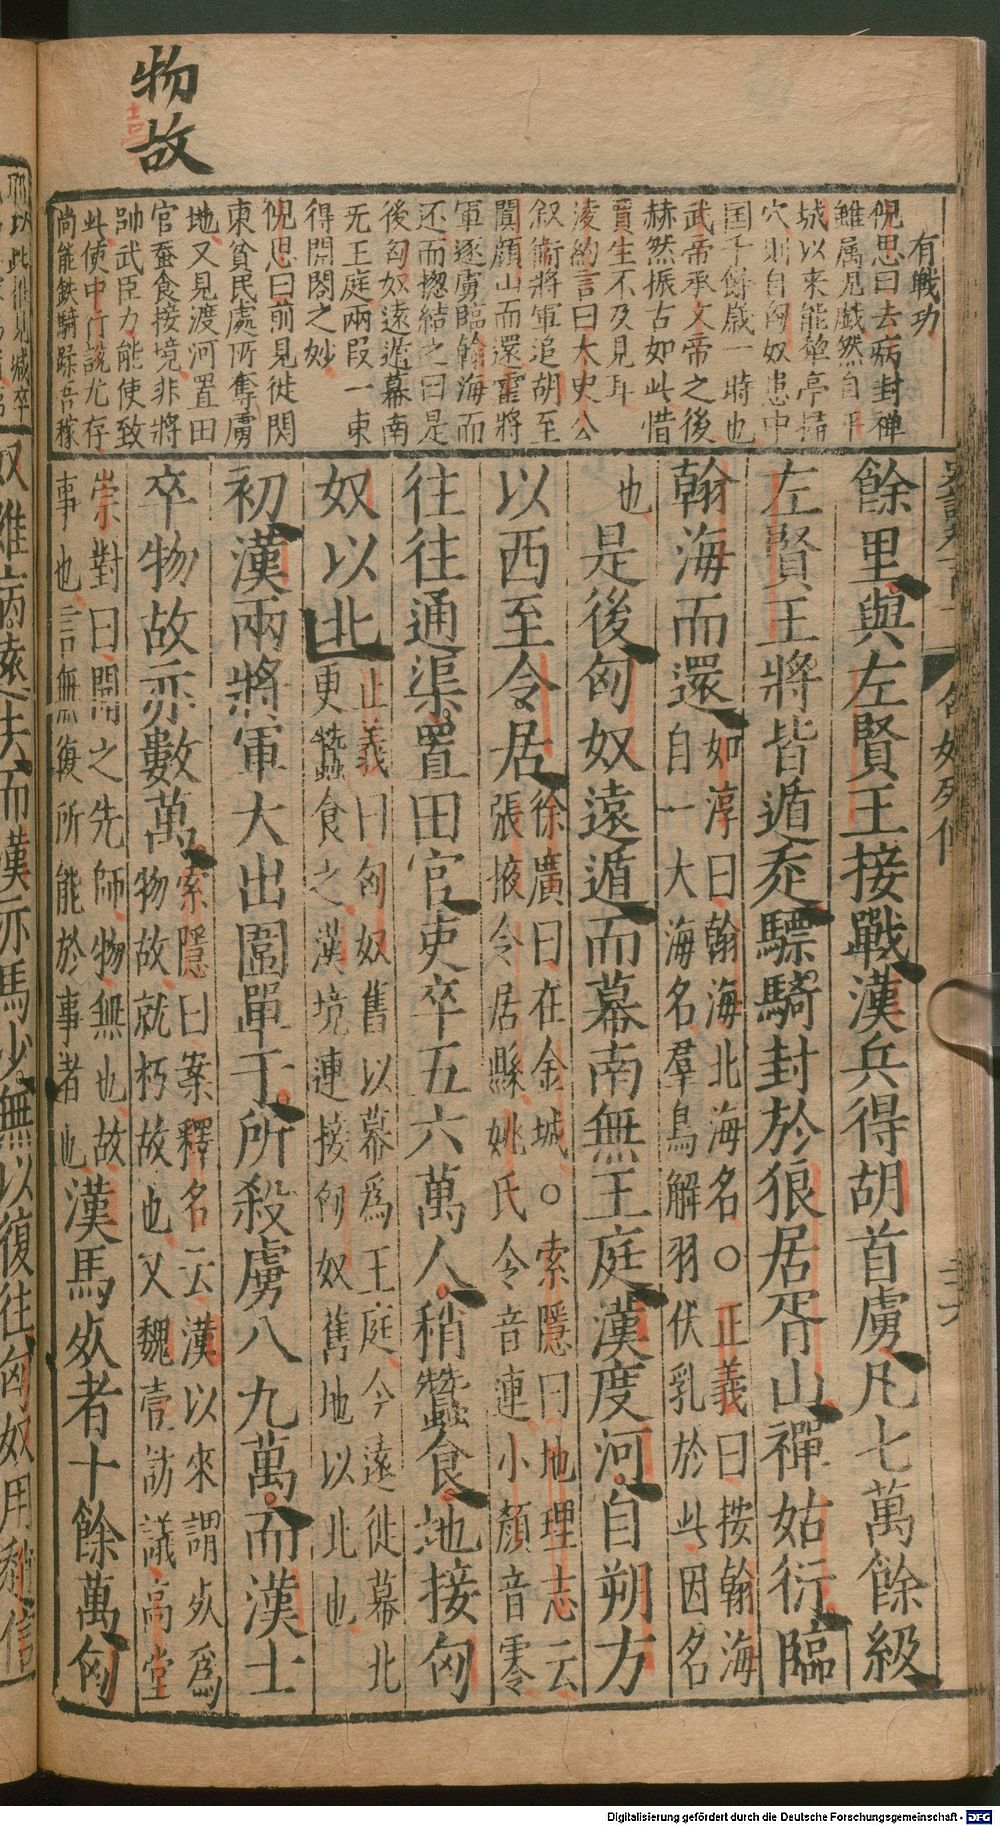 物故
有戰功
倪思曰去病封禪
雖属見戲然自平
城以來能犂亭掃
穴則自匈奴患中
囯千餘歳一時也
武帝承文帝之後
赫然振古如此惜
賈生不及見耳
淩約言曰太史公
叙衞將軍追胡至
闐顔山而還霍將
軍逐虜臨翰海而
还而揔結之曰是
後匈奴遠遁幕南
无王庭兩段一束
得開闔之妙
倪思曰前見徙関
東貧民處所奪虜
地又見渡河置田
官蚕食接境非將
帥武臣力能使致
此使中行説尤存
尚能鉄騎蹂吾稼
餘里與左賢王接戰漢兵得胡首虜凡七萬餘級
左賢王將皆遁走驃騎封於狼居胥山禪姑衍臨
翰海而還如淳曰翰海北海名○正義曰按翰海
自一大海名羣鳥解羽伏乳於此因名
也是後匈奴遠遁而幕南無王庭漢度河自朔方
以西至令居徐廣曰在金城○索隱曰地理志云
張掖令居縣姚氏令音連小顏音零
往往通渠置田官吏卒五六萬人稍蠶食地接匈
奴以北正義曰匈奴舊以幕爲王庭今遠徙幕北
更蠶食之漢境連接匈奴舊地以北也
初漢兩將軍大出圍單于所殺虜八九萬而漢士
卒物故亦數萬索隱曰案釋名云漢以來謂死爲
物故就朽故也又魏壹訪議高堂
崇對曰聞之先師物無也故
事也言無復所能於事者也漢馬死者十餘萬匈
奴雖病遠去而漢亦馬少無以復往匈奴用
Digitalisierung gefördert durch die Deutsche Forschungsgemeinschaft - DFG